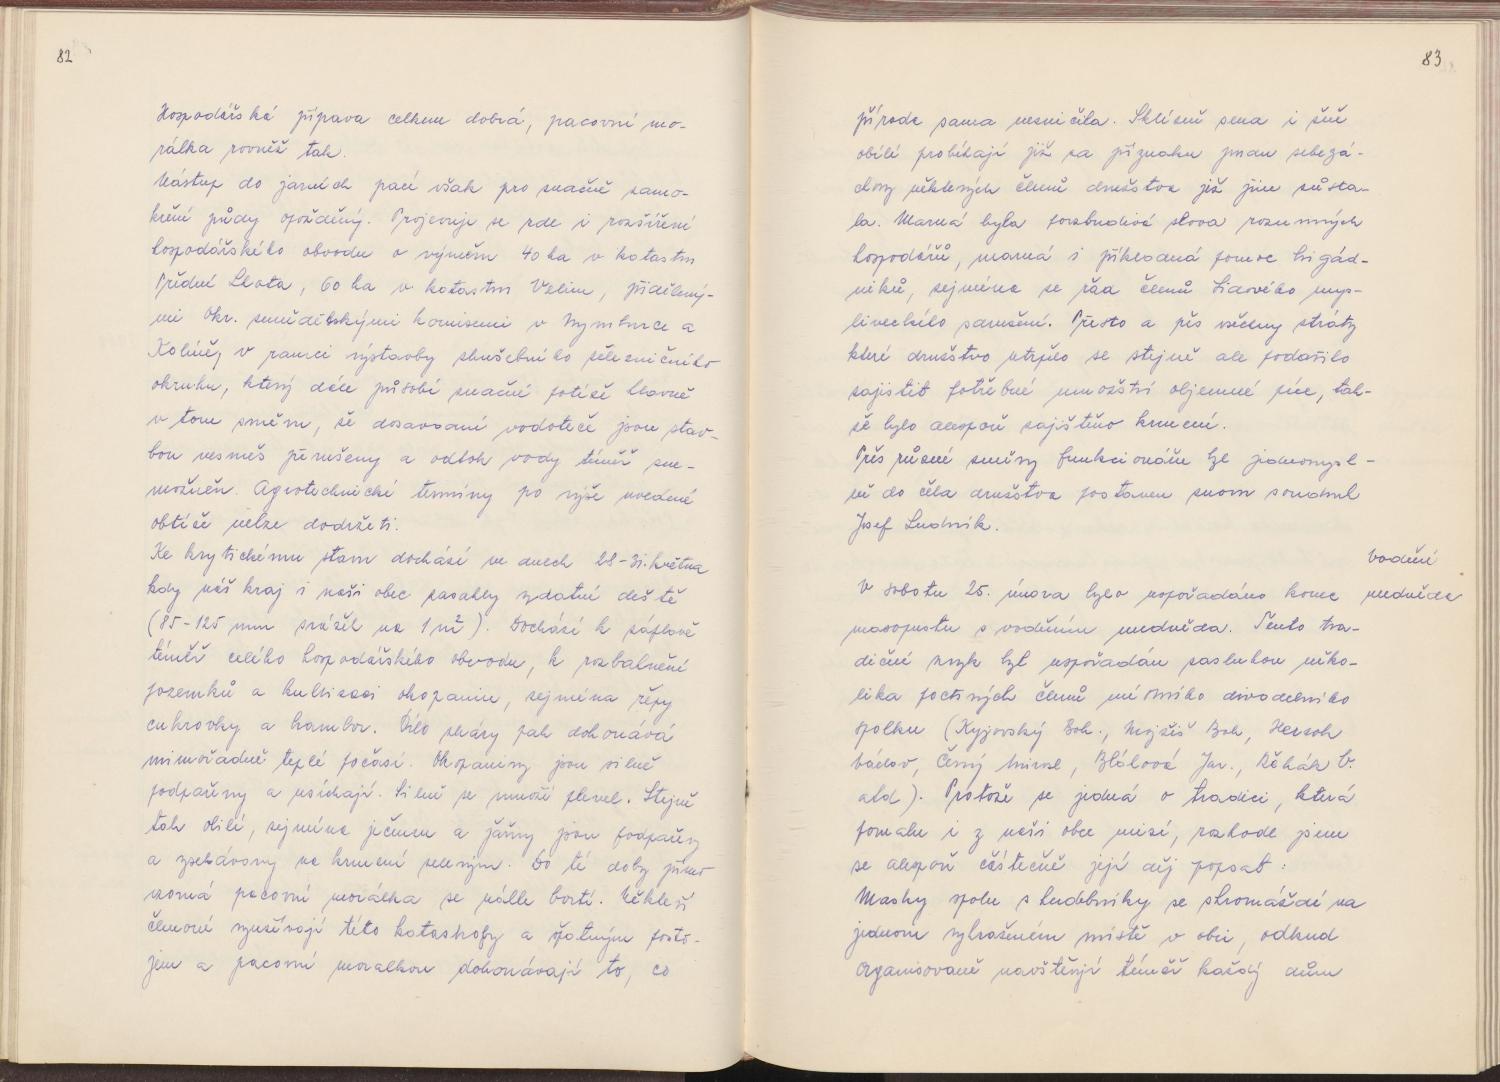 82
Hospodářská příprava celkem dobrá, pracovní mo-
rálka rovněž tak.
Nástup do jarních prací však pro značné zamo-
kření půdy opožděný. Projevuje se zde i rozšíření
hospodářského obvodu o výměru 40 ha v katastru
Přední Lhota, 60 ha v katastru Velim, přidělený-
mi Okr. zemědělskými komisemi v Nymburce a
Kolíně, v rámci výstavby zkušebního železničního
okruhu, který dále působí značné potíže hlavně
v tom směru, že dosavadní vodoteče jsou stav-
bou vesměs přerušeny a odtok vody téměř zne-
možněn. Agrotechnické termíny po výše uvedené
obtíže nelze dodržeti.
Ke krytickému stavu dochází ve dnech 28-31. května
kdy náš kraj i naši obec zasahly vydatné deště
(85-125 mm srážek na 1 m²). Dochází k záplavě
téměř celého hospodářského obvodu, k rozbahnění
pozemků a kultivaci okopanin, zejména řepy
cukrovky a brambor. Dílo zkázy pak dokonává
mimořádně teplé počasí. Okopaniny jsou silně
podpařeny a usíchají. Silně se množí plevel. Stejně
tak obilí, zejména ječmen a jařiny jsou podpařeny
a zpolehávány na krmení zeleným. Do té doby přímo
vzorná pracovní morálka se náhle bortí. Někteří
členové využívají této katastrofy a špatným posto-
jem a pracovní moralkou dokonávají to, co
83
příroda sama nezničila. Sklizně sena i žně
obilí probíhají již za příznaku zmaru sebezá-
chovy některých členů družstva již jim zůsta-
la. Marná byla povzbudivá slova rozumných
hospodářů, marná i příkladná pomoc brigád-
níků, zejména ze řad členů Lidového mys-
liveckého sdružení. Přesto a přes všechny ztráty
které družstvo utrpělo se stejně ale podařilo
zajistit potřebné množství objemné píce, tak-
že bylo alespoň zajištěno krmení.
Přes různé směny funkcionářů byl jednomysl-
ně do čela družstva postaven znovu soudruh
Josef Ludvík.
Vodění
medvěda
V sobotu 25. února bylo uspořádáno konec
masopustu s voděním medvěda. Tento tra-
diční zvyk byl uspořádán zásluhou něko-
lika poctivých členů místního divadelního
spolku (Kyjovský Boh., Mojžíš Boh, Hersok
Václav, Černý Mirosl, Bláhová Jar., Řehák V.
atd). Protože se jedná o tradici, která
pomalu i z naší obce mizí, rozhodl jsem
se alespoň částečně její děj popsat:
Masky spolu s hudebníky se shromáždí na
jednom vyhrazeném místě v obci, odkud
organisovaně navštěvují téměř každý dům